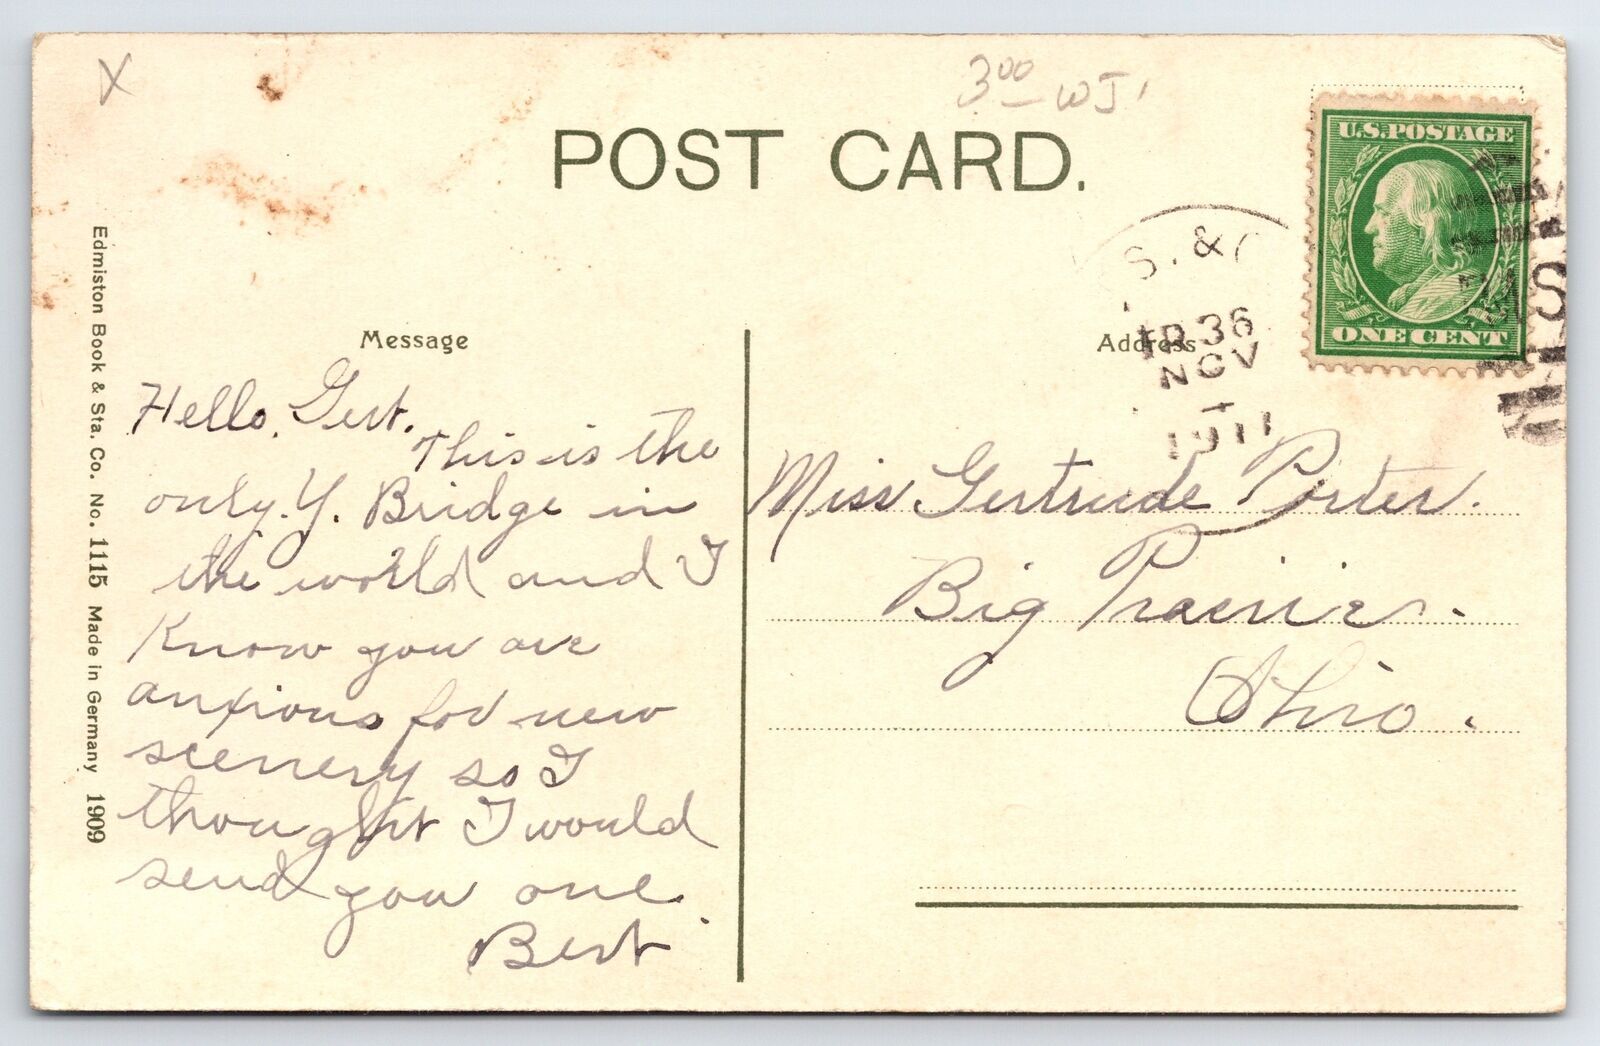 X
3 00 WJ
POST CARD.
U.S. POSTAGE
ONE CENT
S. &
36
NOV
1911
Message
Address
Hello, Gert.
This is the
only Y. Bridge in
the world and I
Know you are
anxious for new
scenery so I
thought I would
send you one.
Bert
Miss Gertrude Porter.
Big Prairie.
Ohio.
Edmiston Book & Sta. Co. No. 1115 Made in Germany 1909